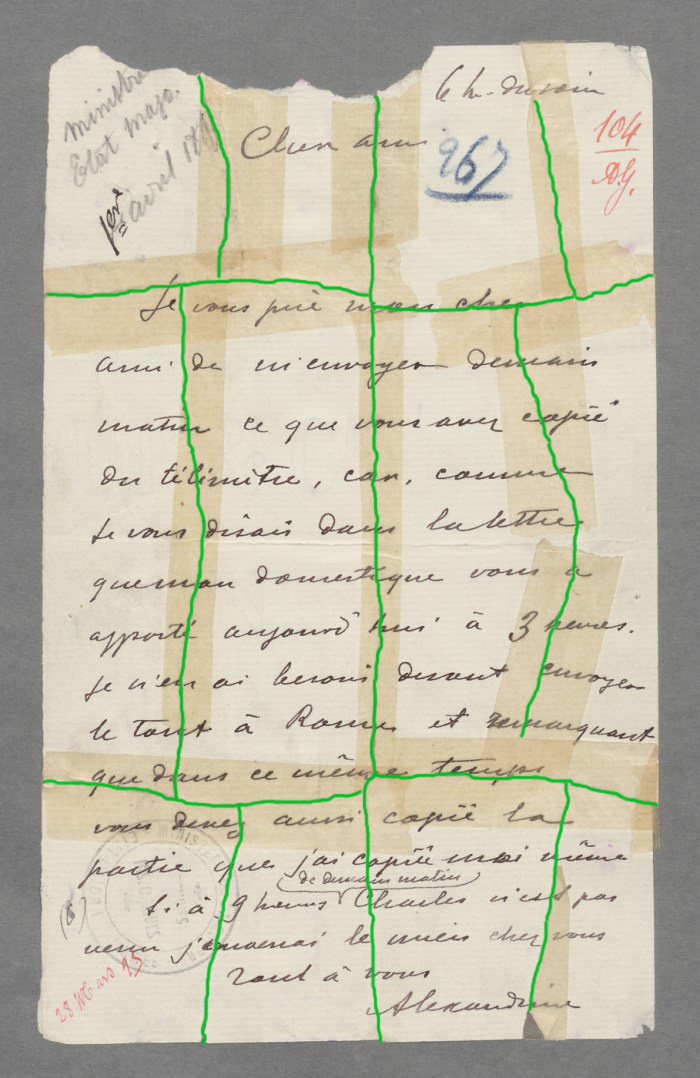 ministre
Etat majo.
1ere avril 18
6 h. du soir
104
D.G.
Cher ami
267
Je vous prie mon cher
ami de m'envoyer demain
matin ce que vous avez copié
du télémètre, car, comme
je vous disais dans la lettre
que mon domestique vous a
apporté aujourd'hui à 3 heures.
je n'en ai besoin devant envoyer
le tout à Rome et remarquant
que dans ce même temps
vous devez aussi copié la
partie que j'ai copiée moi même
de demain matin
(8) Si à 9 heures Charles n'est pas
venu j'enverai le mien chez vous
Tout à vous
Alexandrine
28 Mars 95